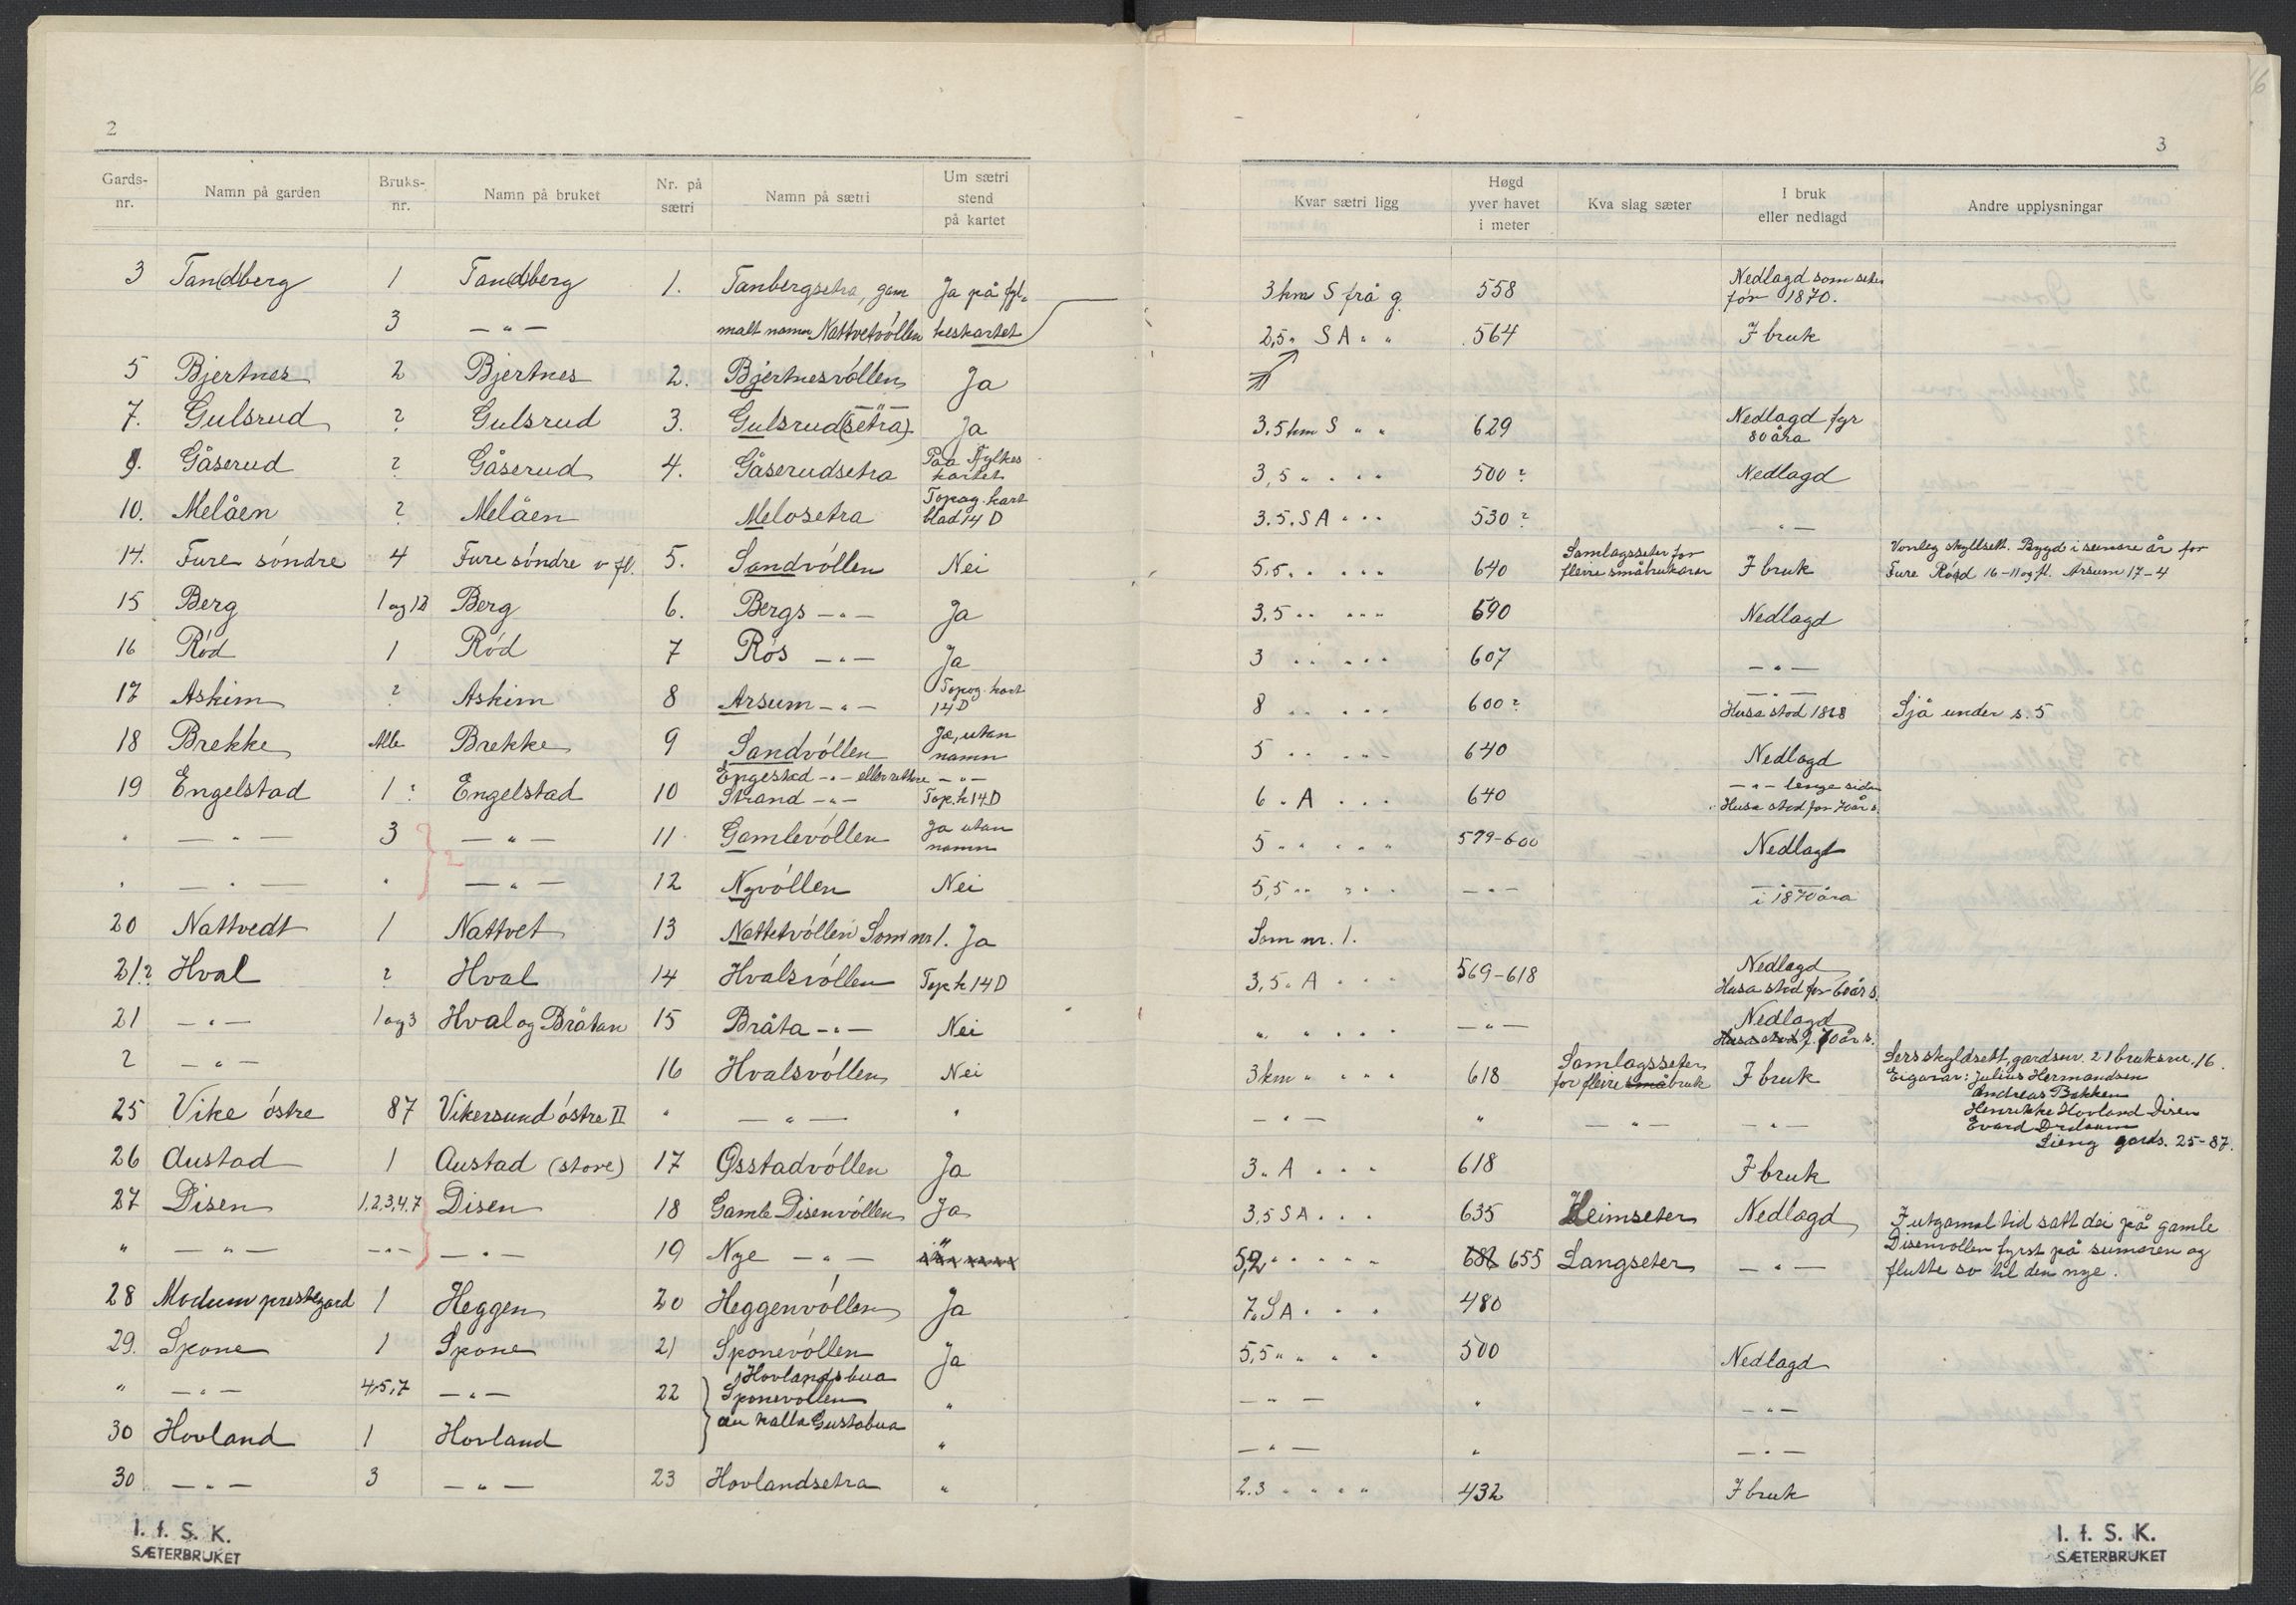 2
Gards-nr. | Namn på garden | Bruks-nr. | Namn på bruket | Nr. på sætri | Namn på sætri | Um sætri stend på kartet
3 Tan(d)berg 1 Tan(d)berg 1. Tanbergsetra, gam Ja på fyl-
3 —"— malt namn Nattvetvóllen keskartet
5 Bjertnes 2 Bjertnes 2. Bjertnesvóllen Ja
7. Gulsrud ? Gulsrud 3. Gulsrud(setra) Ja
9. Gåserud ? Gåserud 4. Gåserudsetra Paa Fylkes kartet
10. Melåen ? Melåen Melosetra Topog. kart blad 14 D
14. Fure sóndre 4 Fure sóndre v fl. 5. Sandvóllen Nei
15 Berg 1 og 12 Berg 6. Bergs —"— Ja
16 Ród 1 Ród 7 Rós —"— Ja
17 Askim ? Askim 8 Arsum —"— Topog. kart 14 D
18 Brekke Alle Brekke 9 Sandvóllen Ja, utan namn
19 Engelstad 1 ? Engelstad 10 Engestad —"— eller rettare —"—
Strand —"— Top. k 14 D
" —"— 3 —"— 11 Gamlevóllen Ja utan namn
" —"— " —"— 12 Nyvóllen Nei
20 Nattvedt 1 Nattvet 13 Nattetvóllen Som nr 1. Ja
21? Hval ? Hval 14 Hvalsvóllen Top. k 14 D
21 —"— 1 og 3 Hval og Bråtan 15 Bråta —"— Nei
? —"— 16 Hvalsvóllen Nei
25 Vike óstre 87 Vikersund óstre II " —"— "
26 Austad 1 Austad (store) 17 Ósstadvóllen Ja
27 Disen 1,2,3,4,7 Disen 18 Gamle Disenvóllen Ja
" —"— —"— —"— 19 Nye —"— "
28 Modum prestegard 1 Heggen 20 Heggenvóllen Ja
29. Spone 1 Spone 21 Sponevóllen Ja
" —"— 4,5,7 —"— 22 Hovlandsbua
Sponevollen "
au kalla Gustabua
30 Hovland 1 Hovland "
30 —"— 3 —"— 23 Hovlandsetra "
I. f. S. K.
SÆTERBRUKET
3
Kvar sætri ligg | Høgd yver havet i meter | Kva slag sæter | I bruk eller nedlagd | Andre upplysningar
3 km S frå g. 558 Nedlagd som seter for 1870.
2,5 " S A " " 564 I bruk
3.5 km S " " 629 Nedlagd fyr 80 åra
3,5 " " " " 500 ? Nedlagd
3.5. S A " " " 530 ? —"—
5,5. " " " " 640 Samlagsseter for fleire småbrukarar I bruk Vonleg skyldsett. Bygd i seinare år for
Fure Ród 16-11 og fl. Arsum 17-4
3,5 " " " " " 590 Nedlagd
3 " " " " " 607 —"—
8 " " " " " 600 ? —"— Husa stod 1828 Sjå under s. 5
5 " " " " 640 Nedlagd
6 " A " " " 640 —"— lenge sidan
Husa stod for 70 år s.
5 " " " " " 579-600 Nedlagt
5,5 " " " " " —"— —"— i 1870 åra
Som nr. 1.
3,5 " A " " " 569-618 Nedlagd
Husa stod for 60 år s.
" " " " " —"— Nedlagd
Husa stod f. 70 år s.
3 km " " " " 618 Samlagsseter for fleire småbruk I bruk Sers skyldsett, gardsnr. 21 bruksnr. 16.
Eigarar: Julius Hermandsen
Andreas Bakken
Henrikke Hovland Disen
Evard
Lieng gards. 25-87.
—"— " —"— —"—
3 " A " " " 618 I bruk
3,5 S A " " " 635 Heimseter Nedlagd I utgamal tid satt dei på gamle
Disenvollen fyrst på sumaren og
flutte so til den nye.
5,2 " " " " " 655 Langseter —"—
7 " S A " " " 480
5,5 " " " " 500 Nedlagd
—"— " —"—
—"— " —"—
2.3 " " " " 432 I bruk
I. f. S. K.
SÆTERBRUKET